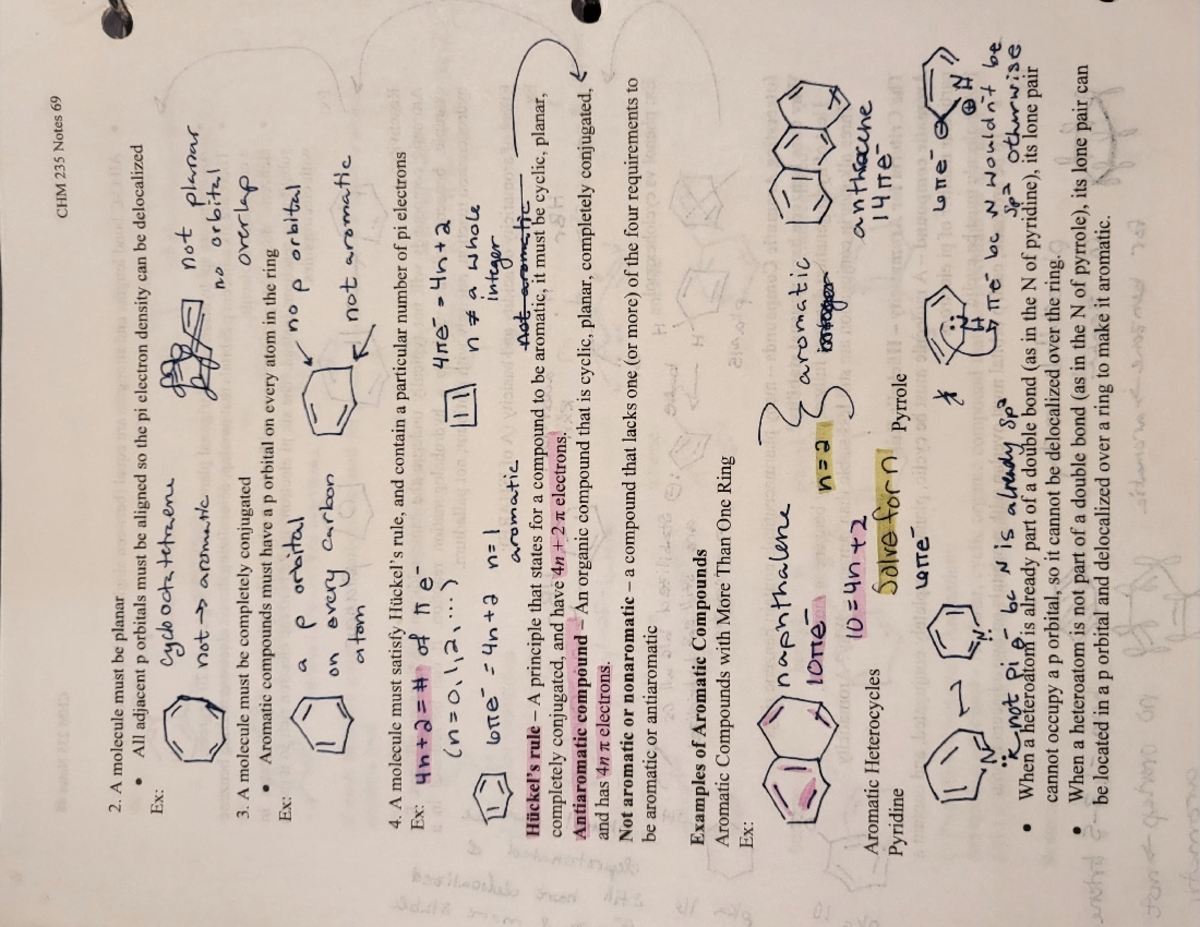 CHM 235 Notes 69
2. A molecule must be planar
• All adjacent p orbitals must be aligned so the pi electron density can be delocalized
Ex:
cyclooctatetraene
not → aromatic
not planar
no orbital
overlap
3. A molecule must be completely conjugated
• Aromatic compounds must have a p orbital on every atom in the ring
Ex:
a p orbital
on every carbon
atom
no p orbital
not aromatic
4. A molecule must satisfy Hückel's rule, and contain a particular number of pi electrons
Ex: 4n+2 = # of π e⁻
(n=0,1,2,...)
6πe⁻ = 4n+2 n=1
aromatic
4πe⁻ = 4n+2
n ≠ a whole
integer
not aromatic
Hückel's rule – A principle that states for a compound to be aromatic, it must be cyclic, planar,
completely conjugated, and have 4n + 2 π electrons.
Antiaromatic compound – An organic compound that is cyclic, planar, completely conjugated,
and has 4n π electrons.
Not aromatic or nonaromatic – a compound that lacks one (or more) of the four requirements to
be aromatic or antiaromatic
Examples of Aromatic Compounds
Aromatic Compounds with More Than One Ring
Ex:
naphthalene
10πe⁻
10=4n+2
n=2
Solve for n
aromatic
anthracene
14πe⁻
Aromatic Heterocycles
Pyridine
Pyrrole
6πe⁻
N
N
not pi e⁻ bc N is already sp²
N
H
6πe⁻
N
H
πe⁻ bc N wouldn't be
sp² otherwise
• When a heteroatom is already part of a double bond (as in the N of pyridine), its lone pair
cannot occupy a p orbital, so it cannot be delocalized over the ring.
• When a heteroatom is not part of a double bond (as in the N of pyrrole), its lone pair can
be located in a p orbital and delocalized over a ring to make it aromatic.